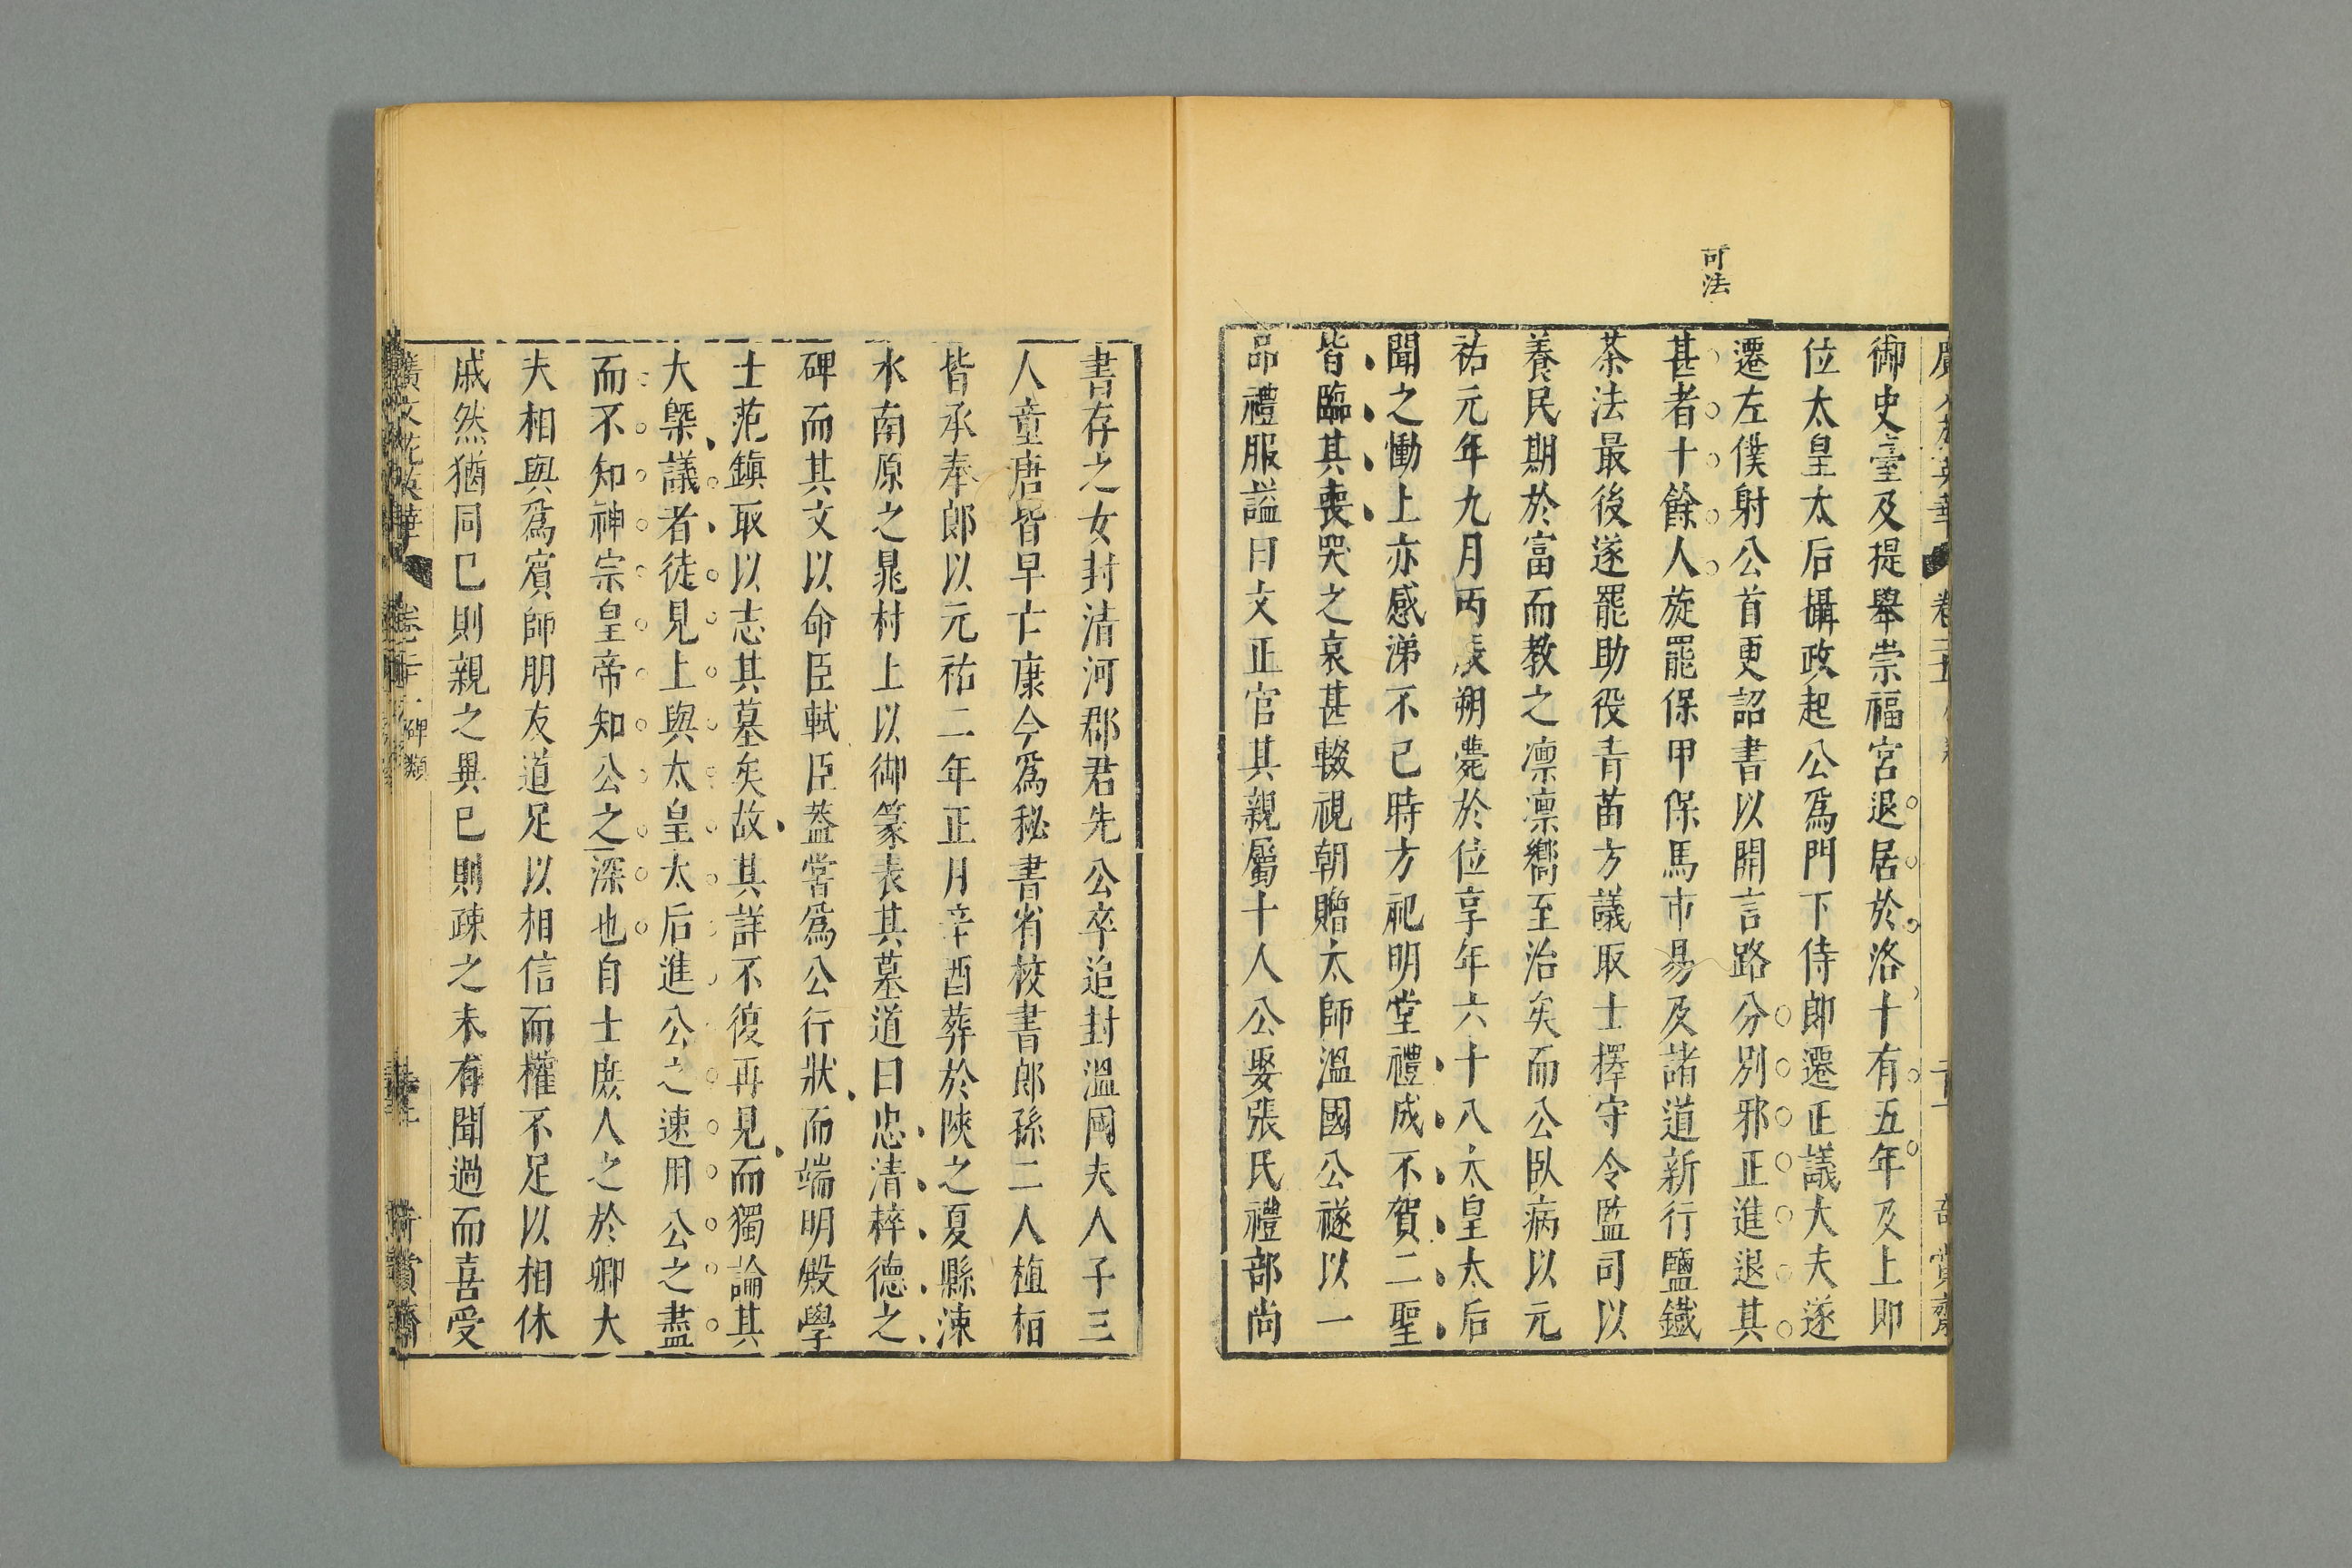 可法
御史臺及提舉崇福宮退居於洛十有五年及上即
位太皇太后攝政起公爲門下侍郎遷正議大夫遂
遷左僕射公首更詔書以開言路分別邪正進退其
甚者十餘人旋罷保甲保馬市易及諸道新行鹽鐵
茶法最後遂罷助役青苗方議取士擇守令監司以
養民期於富而教之凛凛嚮至治矣而公臥病以元
祐元年九月丙辰朔薨於位享年六十八太皇太后
聞之慟上亦感涕不已時方祀明堂禮成不賀二聖
皆臨其喪哭之哀甚輟視朝贈太師溫國公襚以一
品禮服諡曰文正官其親屬十人公娶張氏禮部尚
書存之女封清河郡君先公卒追封溫國夫人子三
人童唐皆早亡康今爲秘書省校書郎孫二人植栢
皆承奉郎以元祐二年正月辛酉葬於陝之夏縣涑
水南原之晁村上以御篆表其墓道曰忠清粹德之
碑而其文以命臣軾臣蓋嘗爲公行狀而端明殿學
士范鎮取以志其墓矣故其詳不復再見而獨論其
大槩議者徒見上與太皇太后進公之速用公之盡
而不知神宗皇帝知公之深也自士庶人之於卿大
夫相與爲賓師朋友道足以相信而權不足以相休
戚然猶同已則親之異已則疎之未有聞過而喜受
廣文苑英華 碑類 奇賞齋